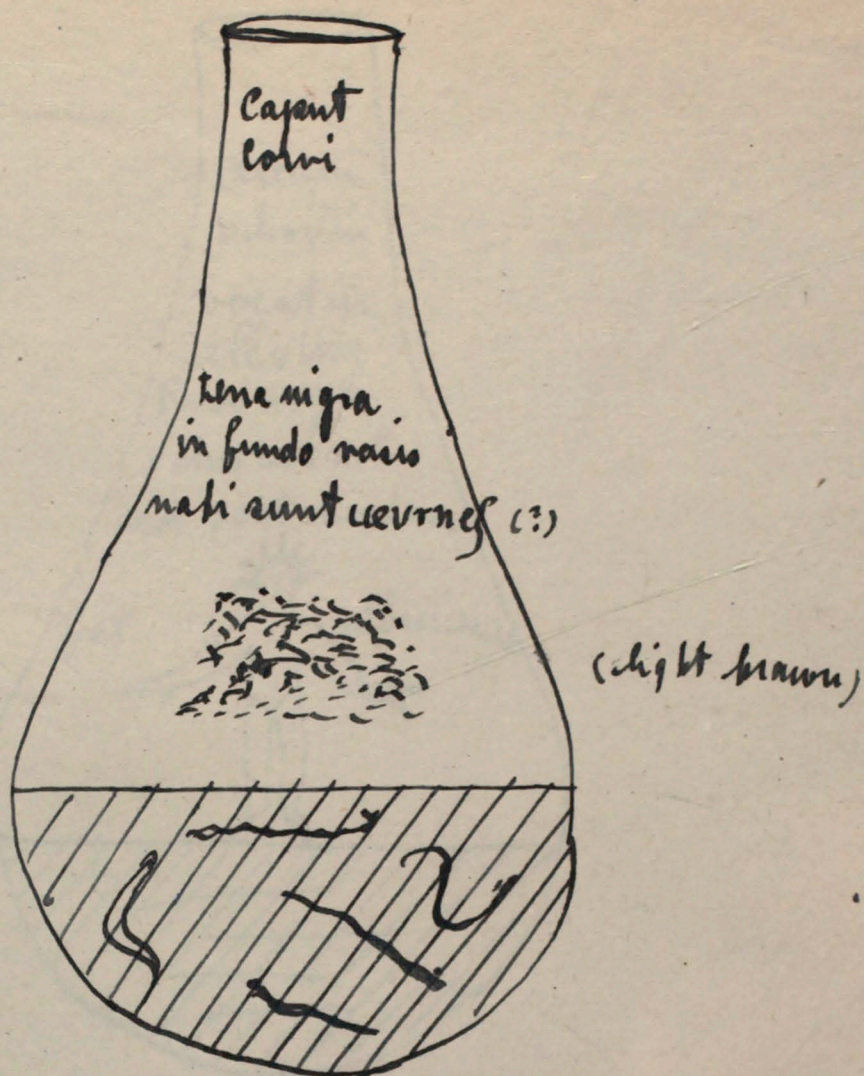 Caput
Corvi
terra nigra
in fundo vasis
nati sunt uevrnes (?)
(light brown)